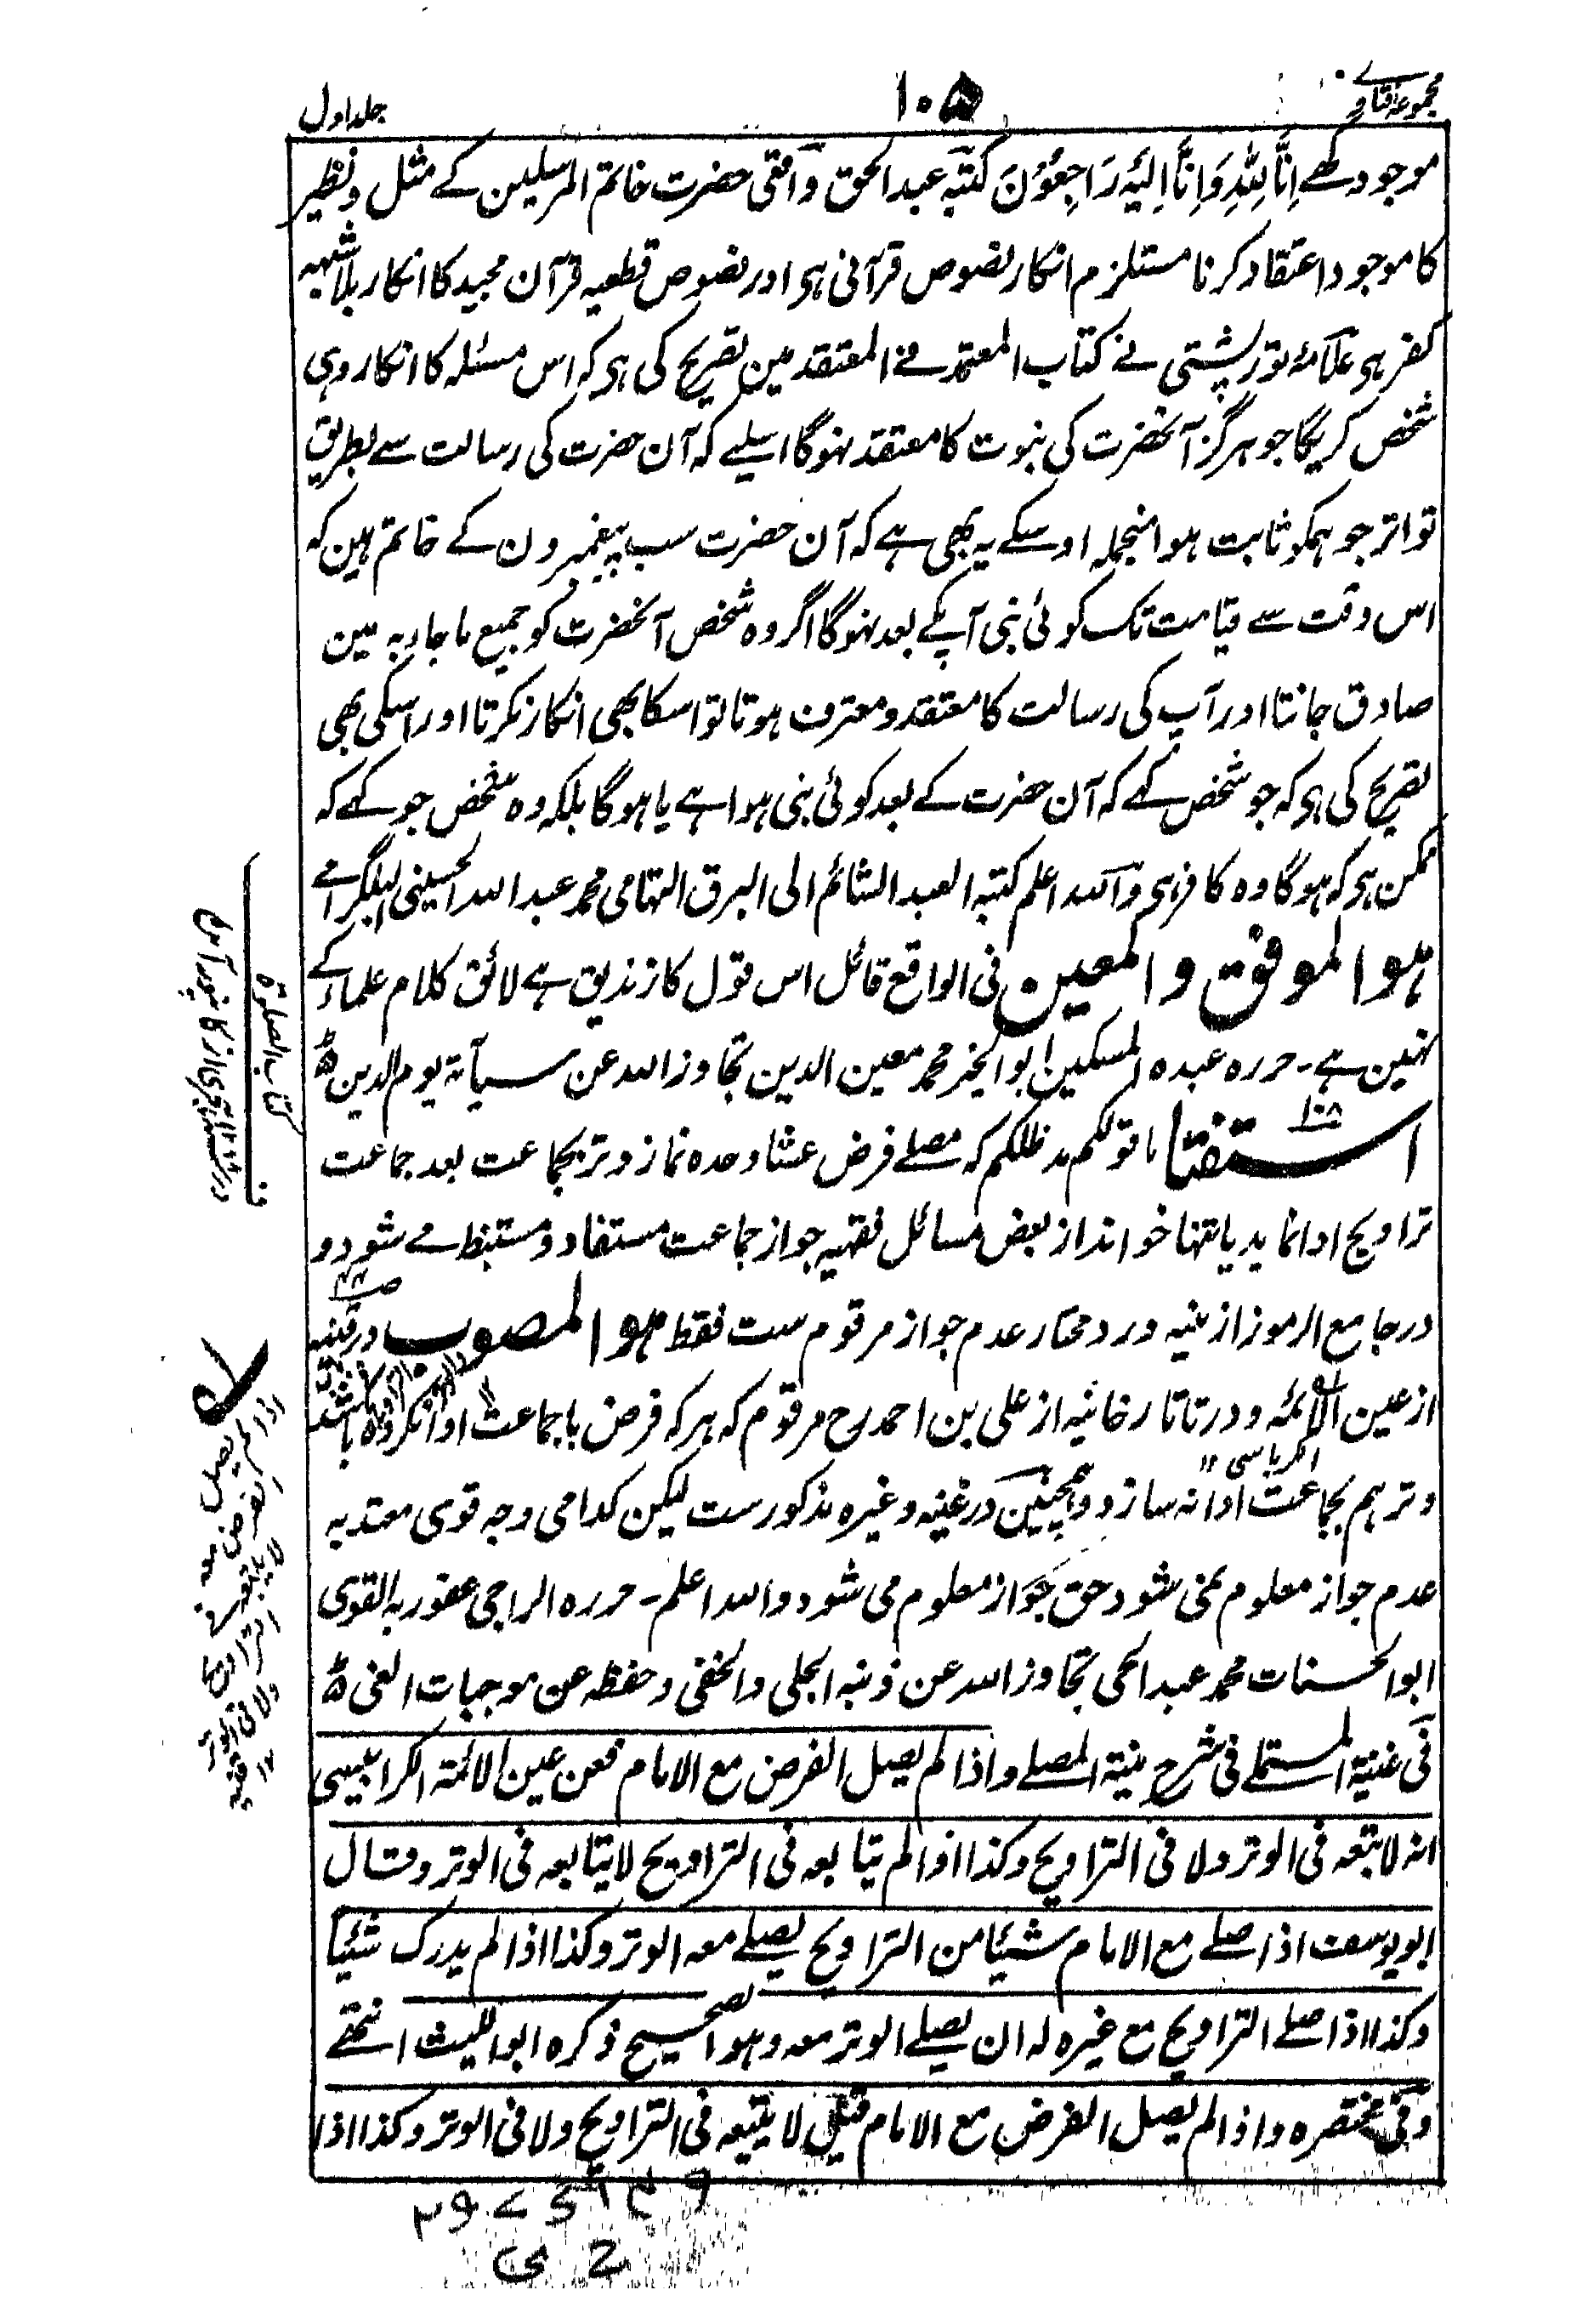 مجموعۂ فتاوے
۱۰۵
جلد اول
موجود کھے اِنَّا لِلّٰہِ وَاِنَّا اِلَیْہِ رَاجِعُوْنَ کتبہ عبد الحق واقعی حضرت خاتم المرسلین کے مثل و نظیر
کا موجود اعتقاد کرنا مستلزم انکار نصوص قرآنی ہی اور نصوص قطعیہ قرآن مجید کا انکار بلا شبہہ
کفر ہی علامۂ تورپشتی نے کتاب المعتمد فے المعتقد مین تصریح کی ہی کہ اس مسئلہ کا انکار وہی
شخص کریگا جو ہرگز آنحضرت کی نبوت کا معتقد نہوگا اسلیے کہ آن حضرت کی رسالت سے بطریق
تواتر جو ہمکو ثابت ہوا منجملہ اوسکے یہ بھی ہے کہ آن حضرت سب پیغمبرون کے خاتم ہین کہ
اس وقت سے قیامت تک کوئی نبی آپکے بعد نہوگا اگر وہ شخص آنحضرت کو جمیع ما جاء بہ مین
صادق جانتا اور آپ کی رسالت کا معتقد و معترف ہوتا تو اسکا بھی انکار نکرتا اور اسکی بھی
تصریح کی ہی کہ جو شخص کہے کہ آن حضرت کے بعد کوئی نبی ہوا ہے یا ہوگا بلکہ وہ شخص جو کہے کہ
ممکن ہی کہ ہوگا وہ کافر ہی واللہ اعلم کتبہ العبد الشائم الی البرق التہامی محمد عبد اللہ الحسینی البلگرامے
ہو الموفق والمعین فی الواقع قائل اس قول کا زندیق ہے لائق کلام علماء کے
نہین ہے۔ حررہ عبدہ المسکین ابو الخیر محمد معین الدین تجاوز اللہ عن سیآتہ یوم الدین
استفتا ۱۰۸ ما قولکم مد ظلکم کہ مصلے فرض عشا وحدہ نماز وتر بجماعت بعد جماعت
تراویح ادا نماید یا تنہا خواند از بعض مسائل فقہیہ جواز جماعت مستفاد و مستنبط مے شود و
در جامع الرموز از منیہ و رد مختار عدم جواز مرقوم ست فقط ہو المصوب در قنیہ
از عین الائمہ و در تاتارخانیہ از علی بن احمد رح مرقوم کہ ہر کہ فرض با جماعت ادا نکردہ باشد
الکرباسی ۱۲
وتر ہم بجماعت ادا نہ سازد و ہمچنین در غنیہ وغیرہ مذکورست لیکن کدامی وجہ قوی معتد بہ
عدم جواز معلوم نمی شود حق جواز معلوم می شود واللہ اعلم۔ حررہ الراجی عفو ربہ القوی
ابو الحسنات محمد عبد الحی تجاوز اللہ عن ذنبہ الجلی والخفی وحفظہ عن موجبات الغی
فی غنیۃ المستملے فی شرح منیۃ المصلے واذا لم یصل الفرض مع الامام فعن عین الائمۃ الکرابیسی
انہ لا یتبعہ فی الوتر ولا فی التراویح وکذا اذا لم یتابعہ فی التراویح لا یتابعہ فی الوتر وقال
ابو یوسف اذا صلے مع الامام شیئا من التراویح یصلے معہ الوتر وکذا اذا لم یدرک شیئا
وکذا اذا صلے التراویح مع غیرہ لہ ان یصلے الوتر معہ وہو الصحیح ذکرہ ابو اللیث انتھے
وفی مختصرہ واذا لم یصل الفرض مع الامام قیل لا یتبعہ فی التراویح ولا فی الوتر وکذا اذا
کتاب الصلوۃ
اذا لم یصل
الفرض معہ
لا یتبعہ فے
التراویح
ولا فی الوتر